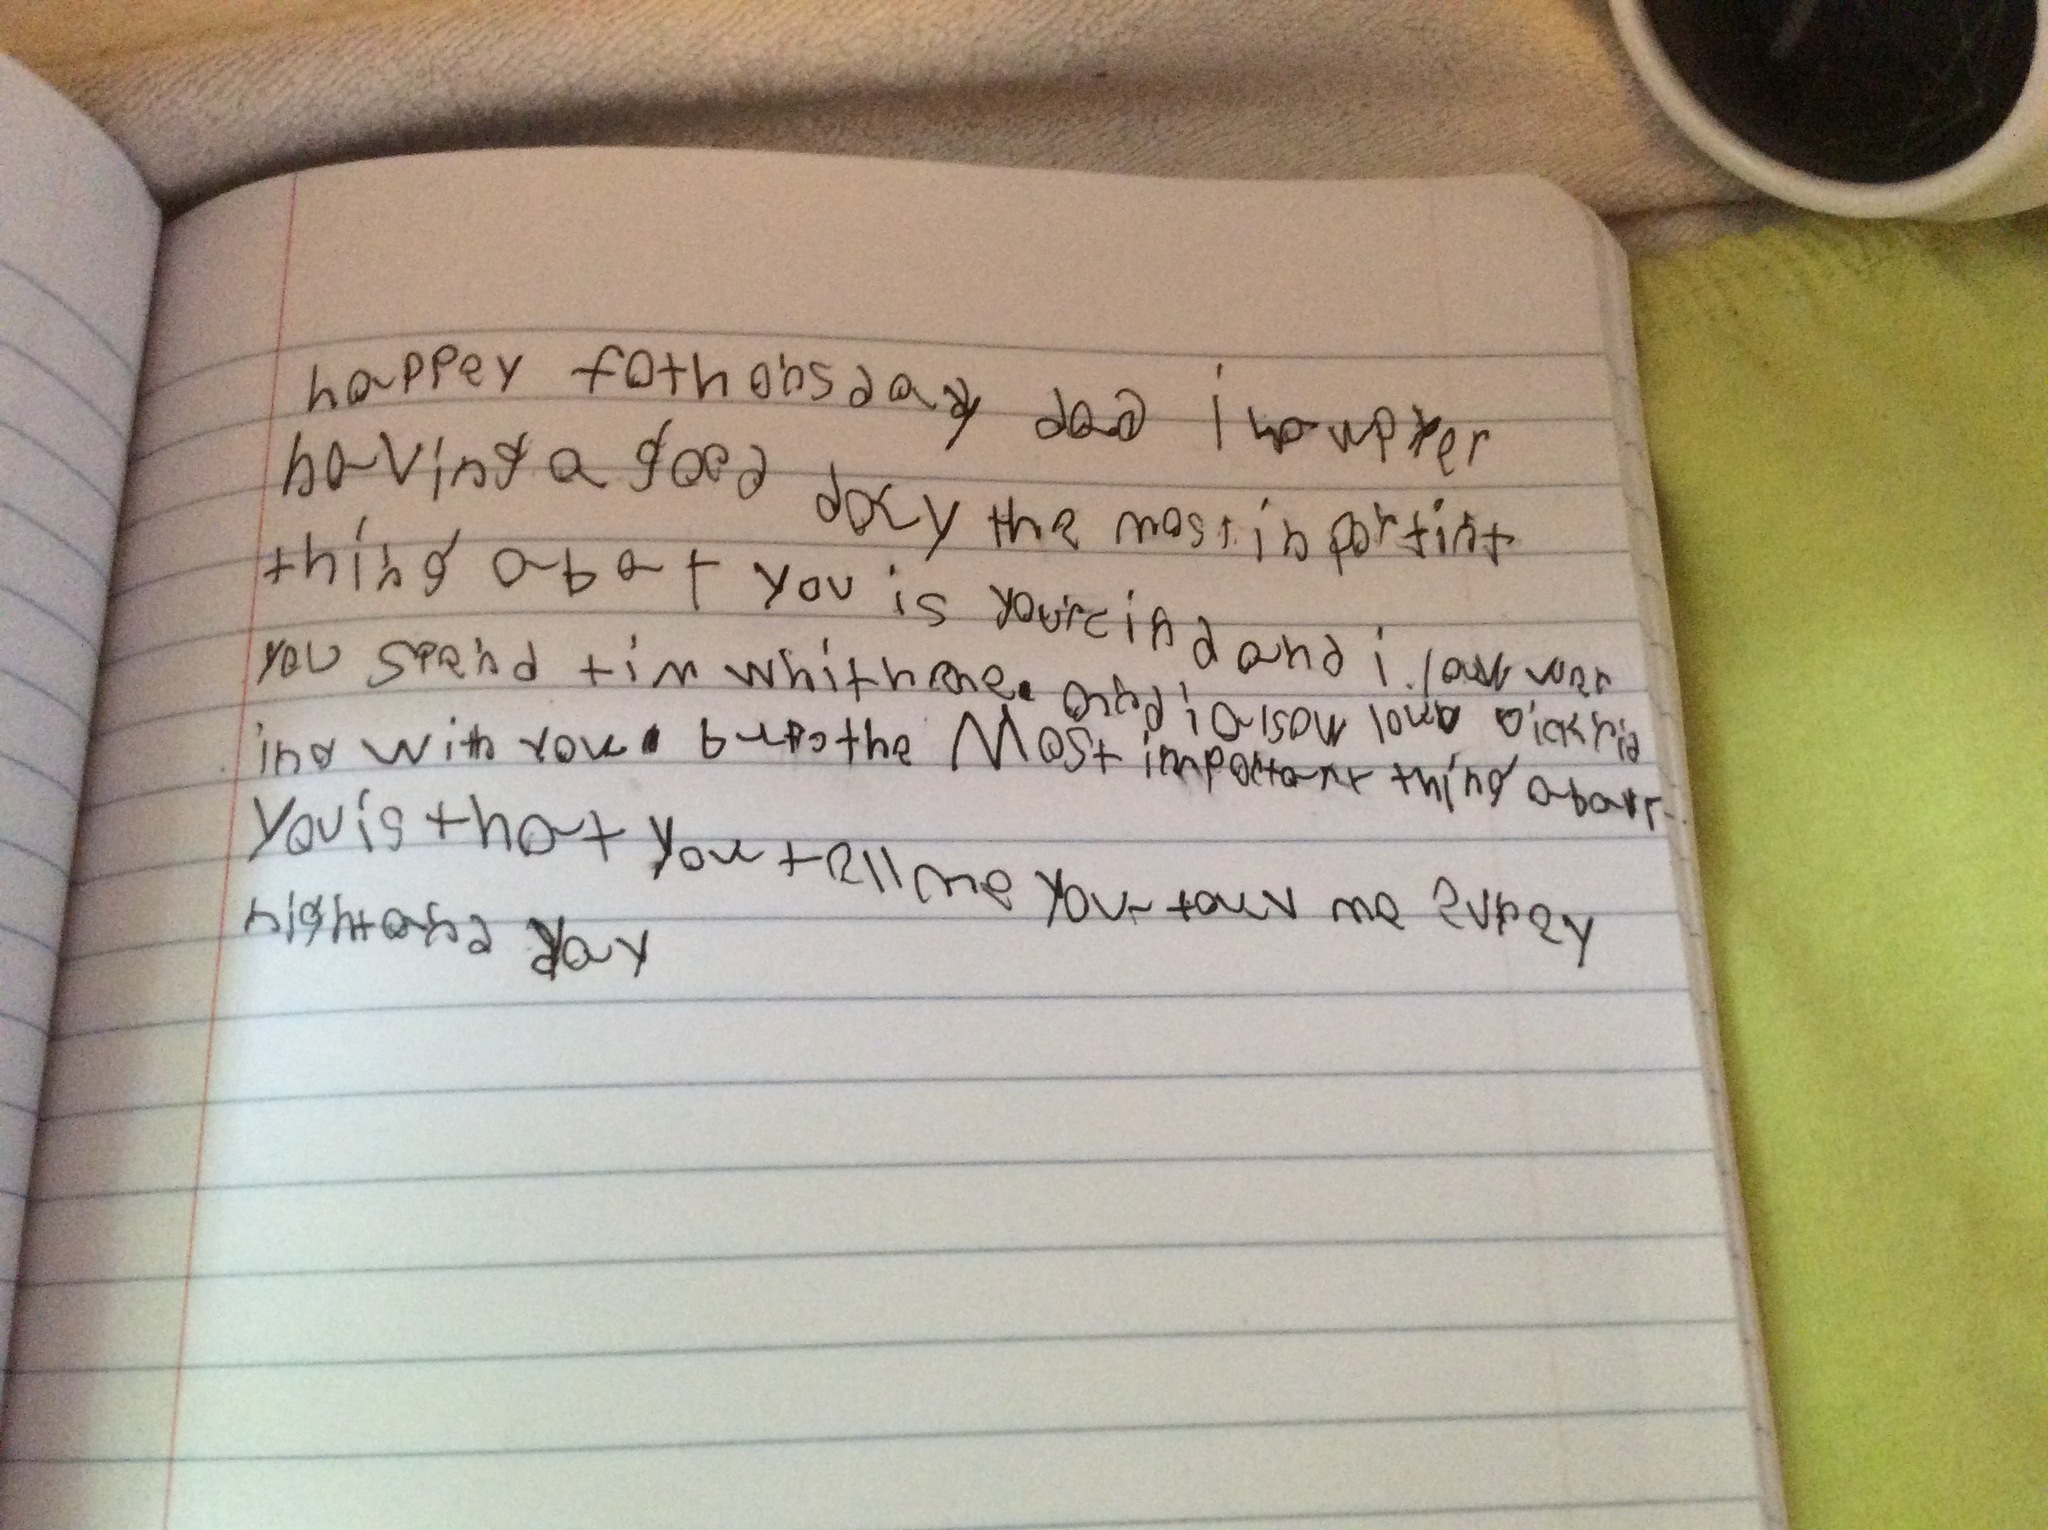 happey fathorsday dad i
having a good day the most in portint
thing abat you is your cind and i love wen
you spend tim whith me. and i olsow love
ing with you. but the Most important thing abour
You is that you tell me you me evrey
night and day